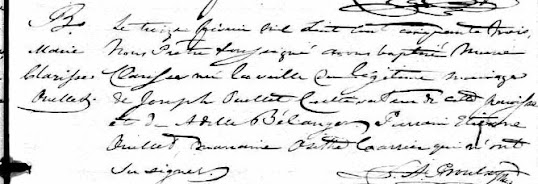 B.
Marie
Clarisse
Ouellet.
Le treize février mil huit cent cinquante trois,
Nous Prêtre soussigné avons baptisé Marie
Clarisse née la veille du légitime mariage
de Joseph Ouellet Cultivateur de cette paroisse
et de Adelle Bélanger Parrain Etienne
Ouellet, marraine Osithe qui n'ont
su signer.